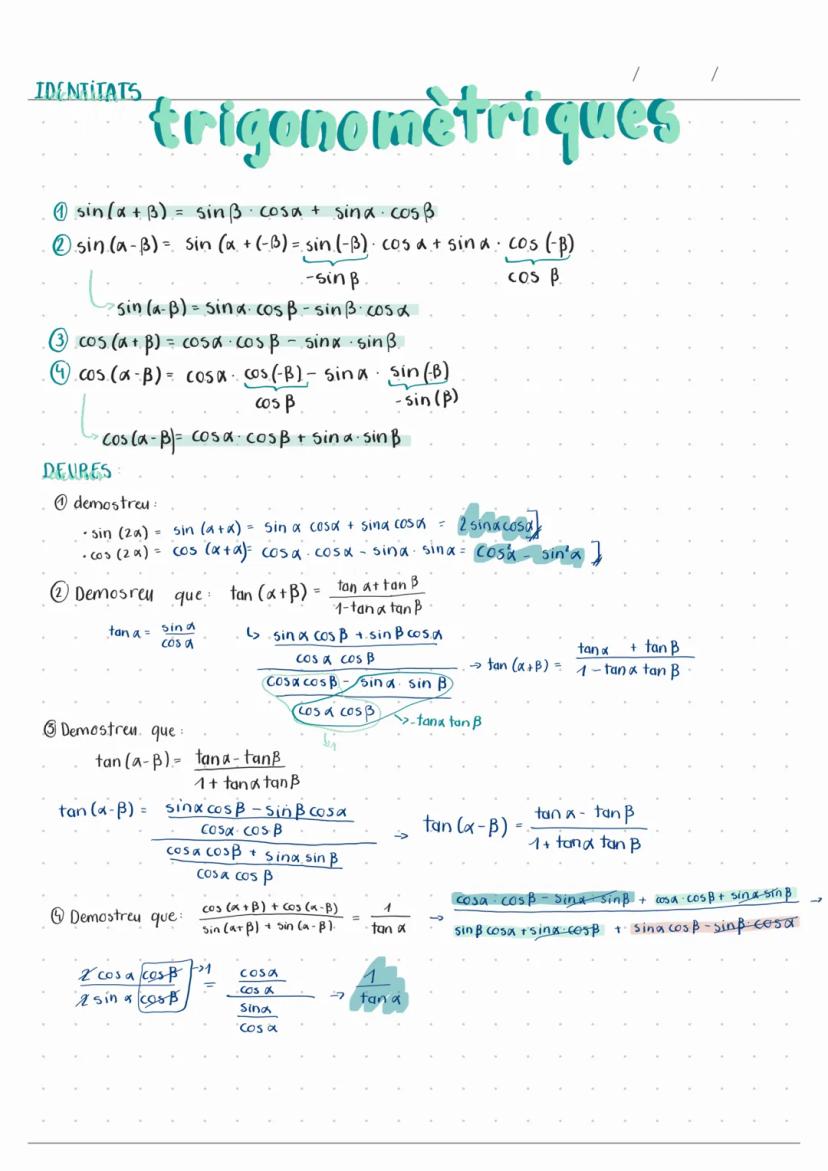 / /
IDENTITATS
trigonomètriques
① sin(α + β) = sinβ · cosα + sinα · cosβ
② sin(α-β) = sin (α +(-β) = sin(-β) · cos α + sinα · cos (-β)
-sinβ cos β
sin (α-β) = sinα · cosβ - sinβ · cosα
③ cos(α+β) = cosα · cosβ - sinα · sinβ
④ cos(α-β) = cosα · cos(-β) - sinα · sin(-β)
cosβ -sin(β)
cos(α-β) = cosα · cosβ + sinα · sinβ
DEURES:
① demostreu:
· sin (2α) = sin (α+α) = sin α cosα + sinα cosα = 2sinαcosα
· cos (2α) = cos (α+α) = cosα · cosα - sinα · sinα = cos²α - sin²α
② Demosreu que: tan (α+β) = tan α+tan β / 1-tanα tanβ
tanα = sinα / cosα ↳ sinα cosβ + sinβ cosα / cosα cosβ
cosαcosβ - sinα · sinβ / cosα cosβ → tan (α+β) = tanα + tanβ / 1 - tanα tanβ
↘ -tanα tanβ
↳1
③ Demostreu que:
tan(α-β) = tanα-tanβ / 1+ tanαtanβ
tan(α-β) = sinαcosβ - sinβcosα / cosα·cosβ / cosαcosβ + sinα sinβ / cosα cosβ → tan(α-β) = tanα - tanβ / 1+ tanα tanβ
④ Demostreu que: cos (α+β) + cos (α-β) / sin (α+β) + sin (α-β) = 1 / tan α → cosα · cosβ - sinα · sinβ + cosα · cosβ + sinα·sinβ / sinβ cosα + sinα·cosβ + sinα cosβ - sinβ·cosα →
2 cosα cosβ / 2 sinα cosβ →1 = cosα / cosα / sinα / cosα → 1 / tanα